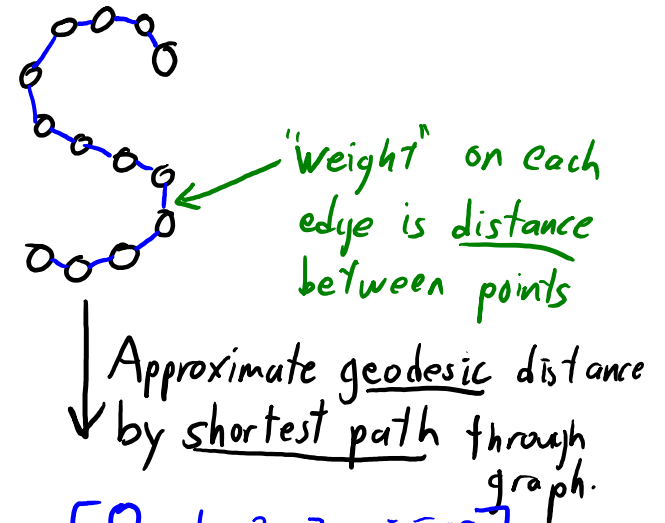 "weight" on each
edge is distance
between points
Approximate geodesic distance
by shortest path through
graph.